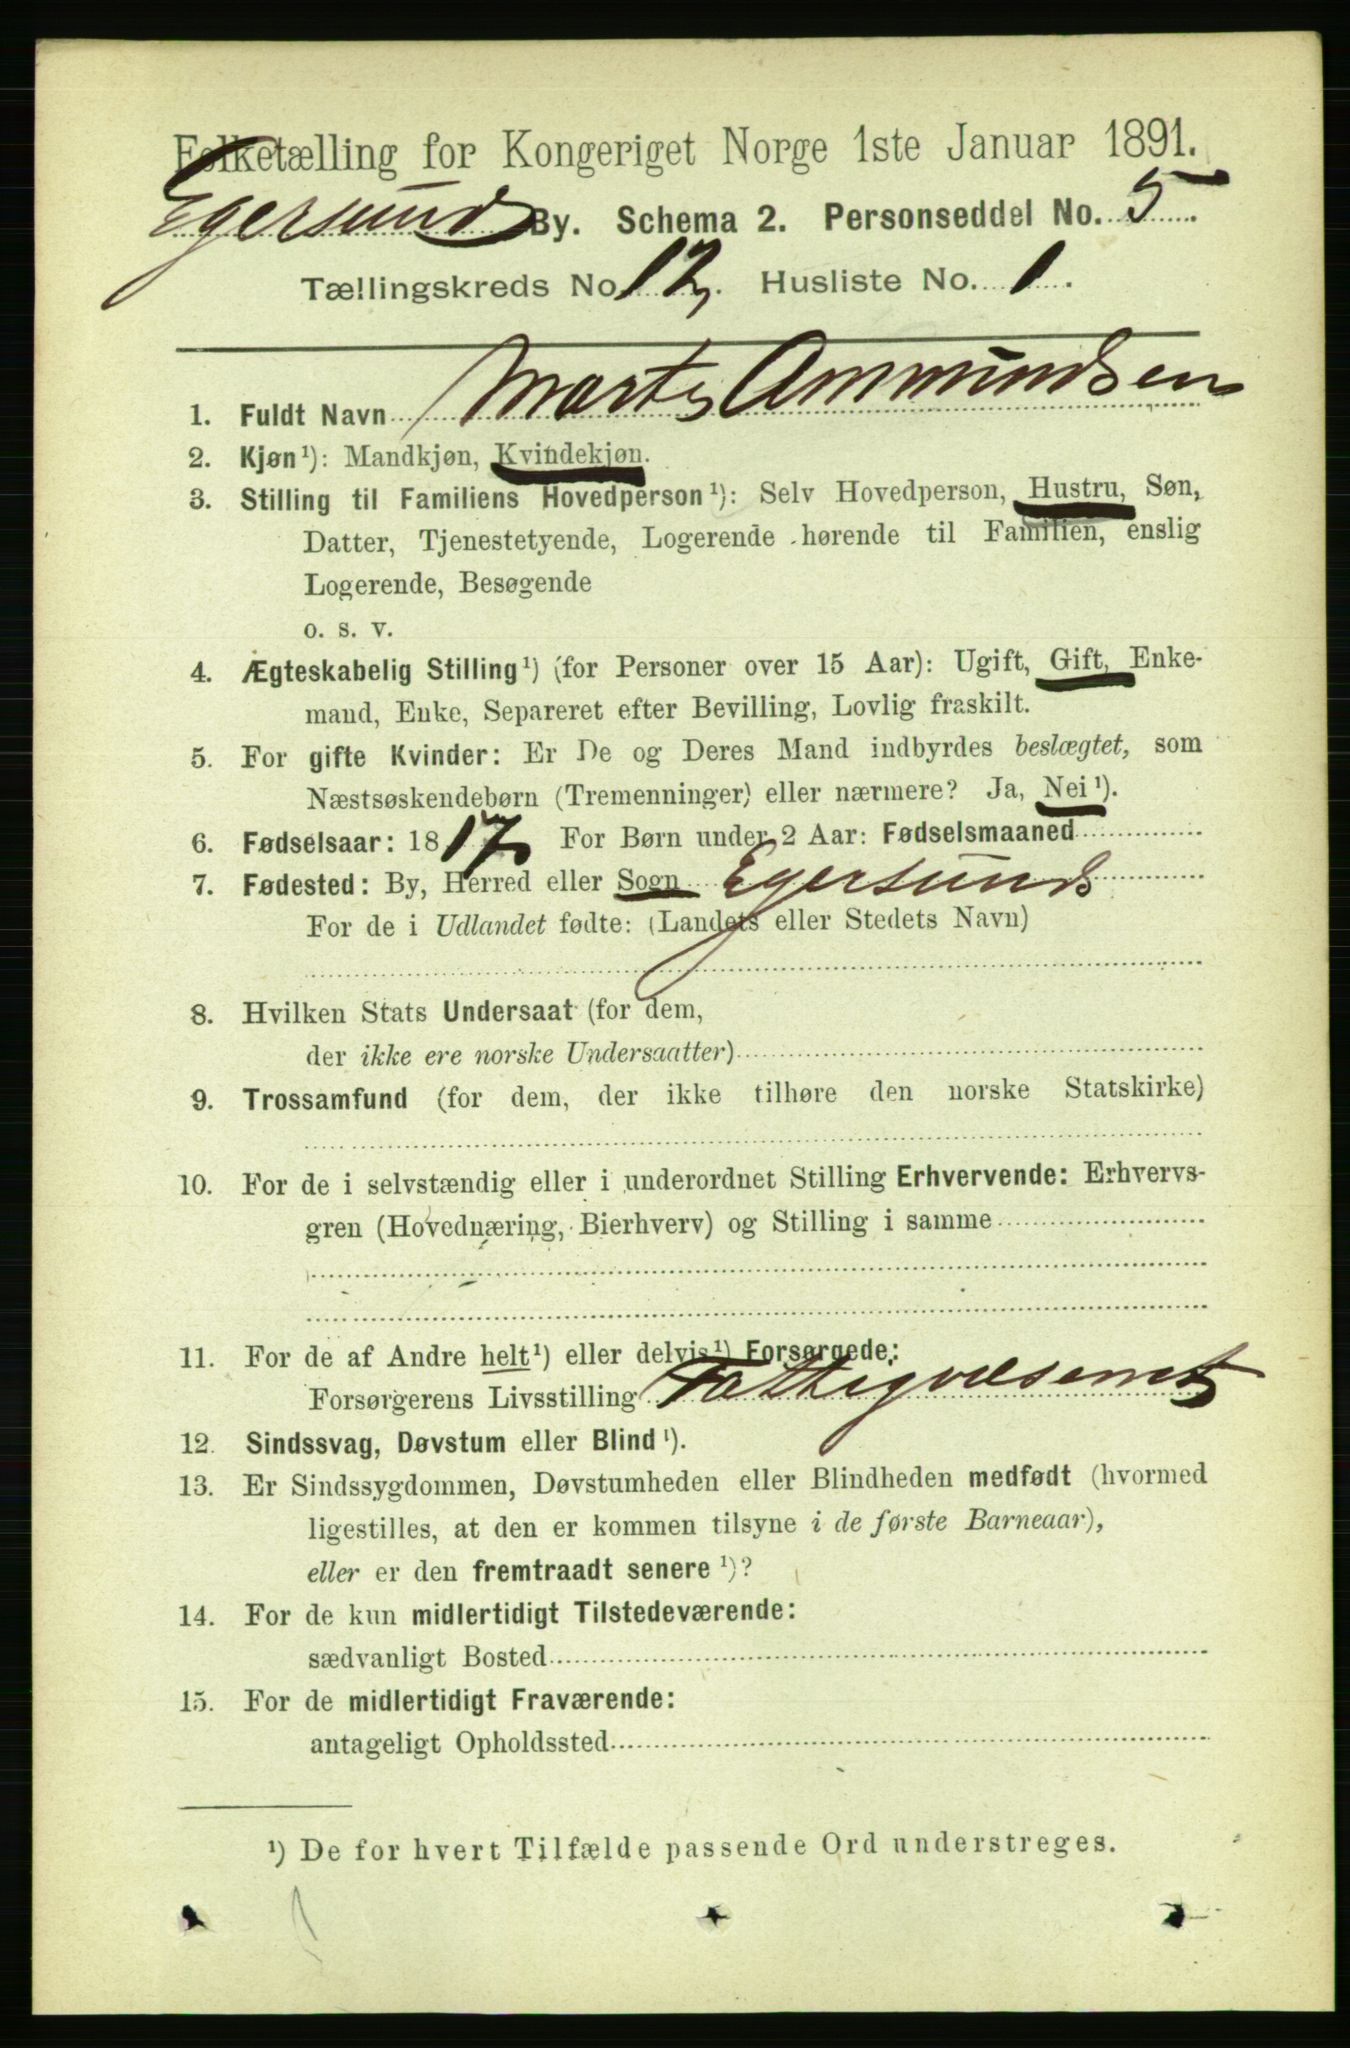 Folketælling for Kongeriget Norge 1ste Januar 1891.
Egersund By. Schema 2. Personseddel No. 5.
Tællingskreds No. 12. Husliste No. 1.
1. Fuldt Navn Marte Ammundsen
2. Kjøn¹): Mandkjøn, Kvindekjøn.
3. Stilling til Familiens Hovedperson¹): Selv Hovedperson, Hustru, Søn,
Datter, Tjenestetyende, Logerende hørende til Familien, enslig
Logerende, Besøgende
o. s. v.
4. Ægteskabelig Stilling¹) (for Personer over 15 Aar): Ugift, Gift, Enke-
mand, Enke, Separeret efter Bevilling, Lovlig fraskilt.
5. For gifte Kvinder: Er De og Deres Mand indbyrdes beslægtet, som
Næstsøskendebørn (Tremenninger) eller nærmere? Ja, Nei¹).
6. Fødselsaar: 1817. For Børn under 2 Aar: Fødselsmaaned
7. Fødested: By, Herred eller Sogn Egersund
For de i Udlandet fødte: (Landets eller Stedets Navn)
8. Hvilken Stats Undersaat (for dem,
der ikke ere norske Undersaatter)
9. Trossamfund (for dem, der ikke tilhøre den norske Statskirke)
10. For de i selvstændig eller i underordnet Stilling Erhvervende: Erhvervs-
gren (Hovednæring, Bierhverv) og Stilling i samme
11. For de af Andre helt¹) eller delvis¹) Forsørgede:
Forsørgerens Livsstilling Fattigvæsenet
12. Sindssvag, Døvstum eller Blind¹).
13. Er Sindssygdommen, Døvstumheden eller Blindheden medfødt (hvormed
ligestilles, at den er kommen tilsyne i de første Barneaar),
eller er den fremtraadt senere¹)?
14. For de kun midlertidigt Tilstedeværende:
sædvanligt Bosted
15. For de midlertidigt Fraværende:
antageligt Opholdssted
¹) De for hvert Tilfælde passende Ord understreges.